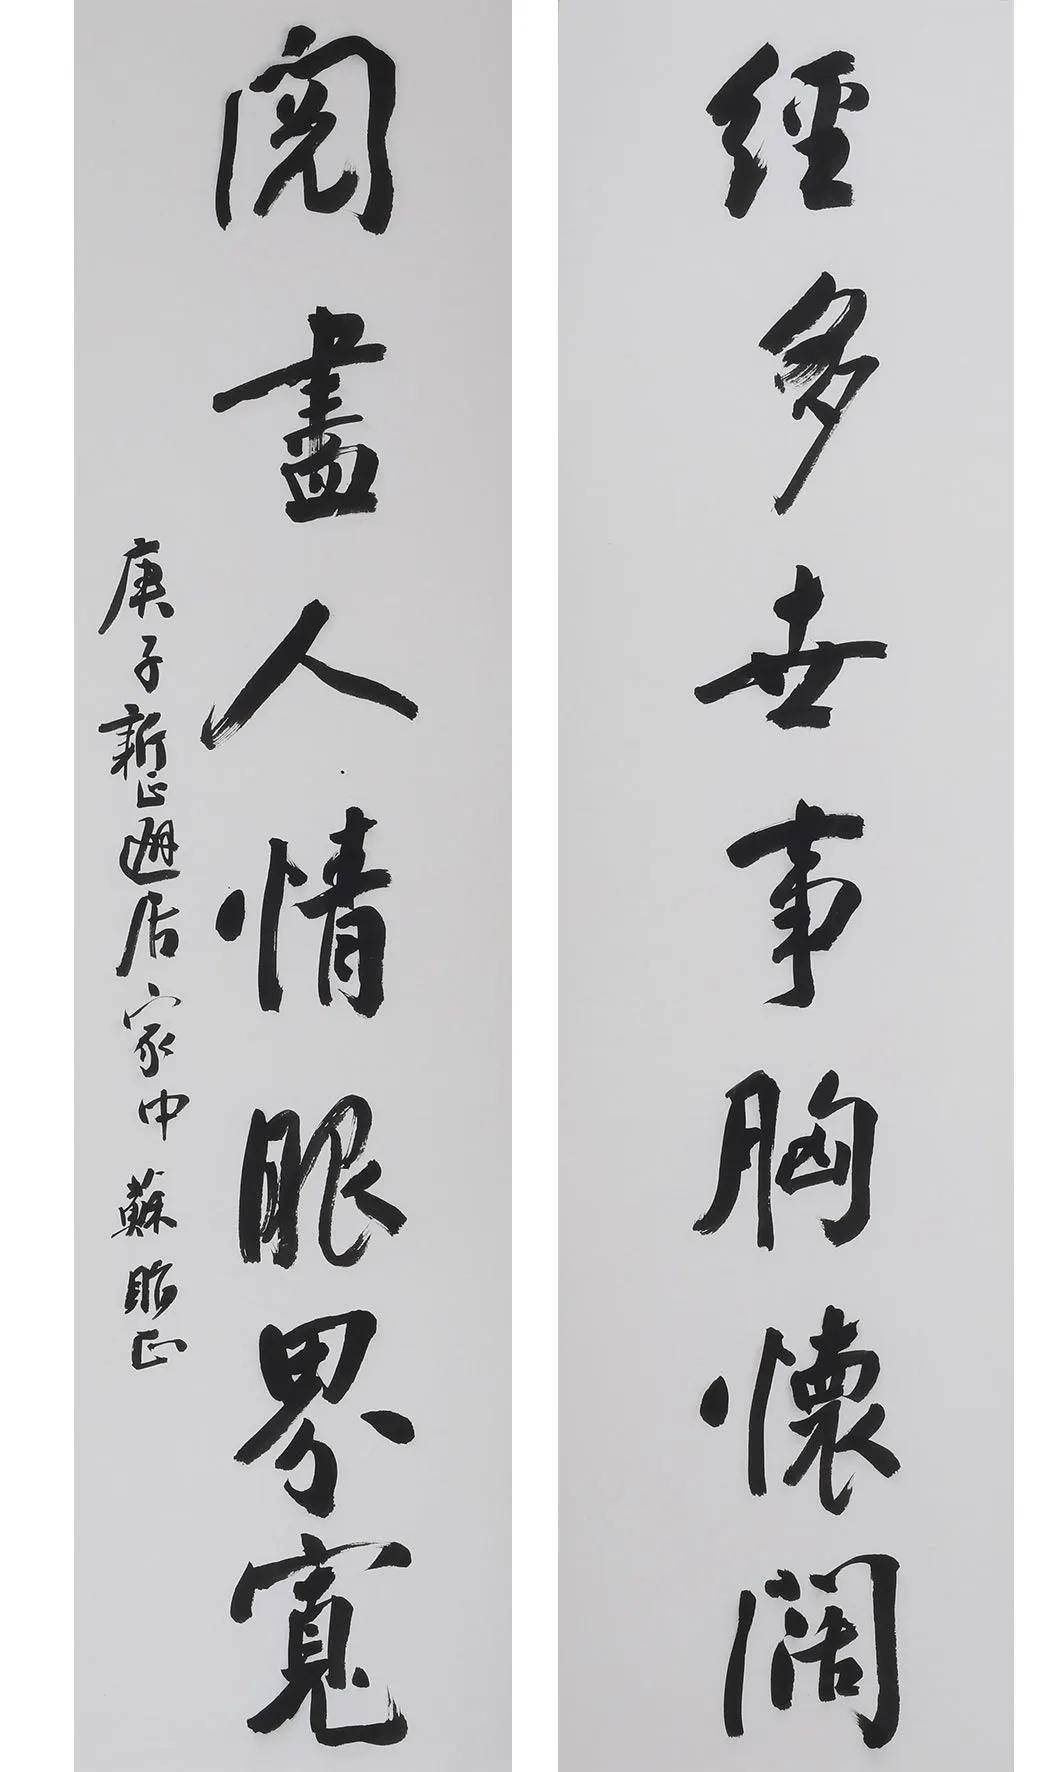 經多世事胸懷闊
閱盡人情眼界寬
庚子新正居家中 蘇正